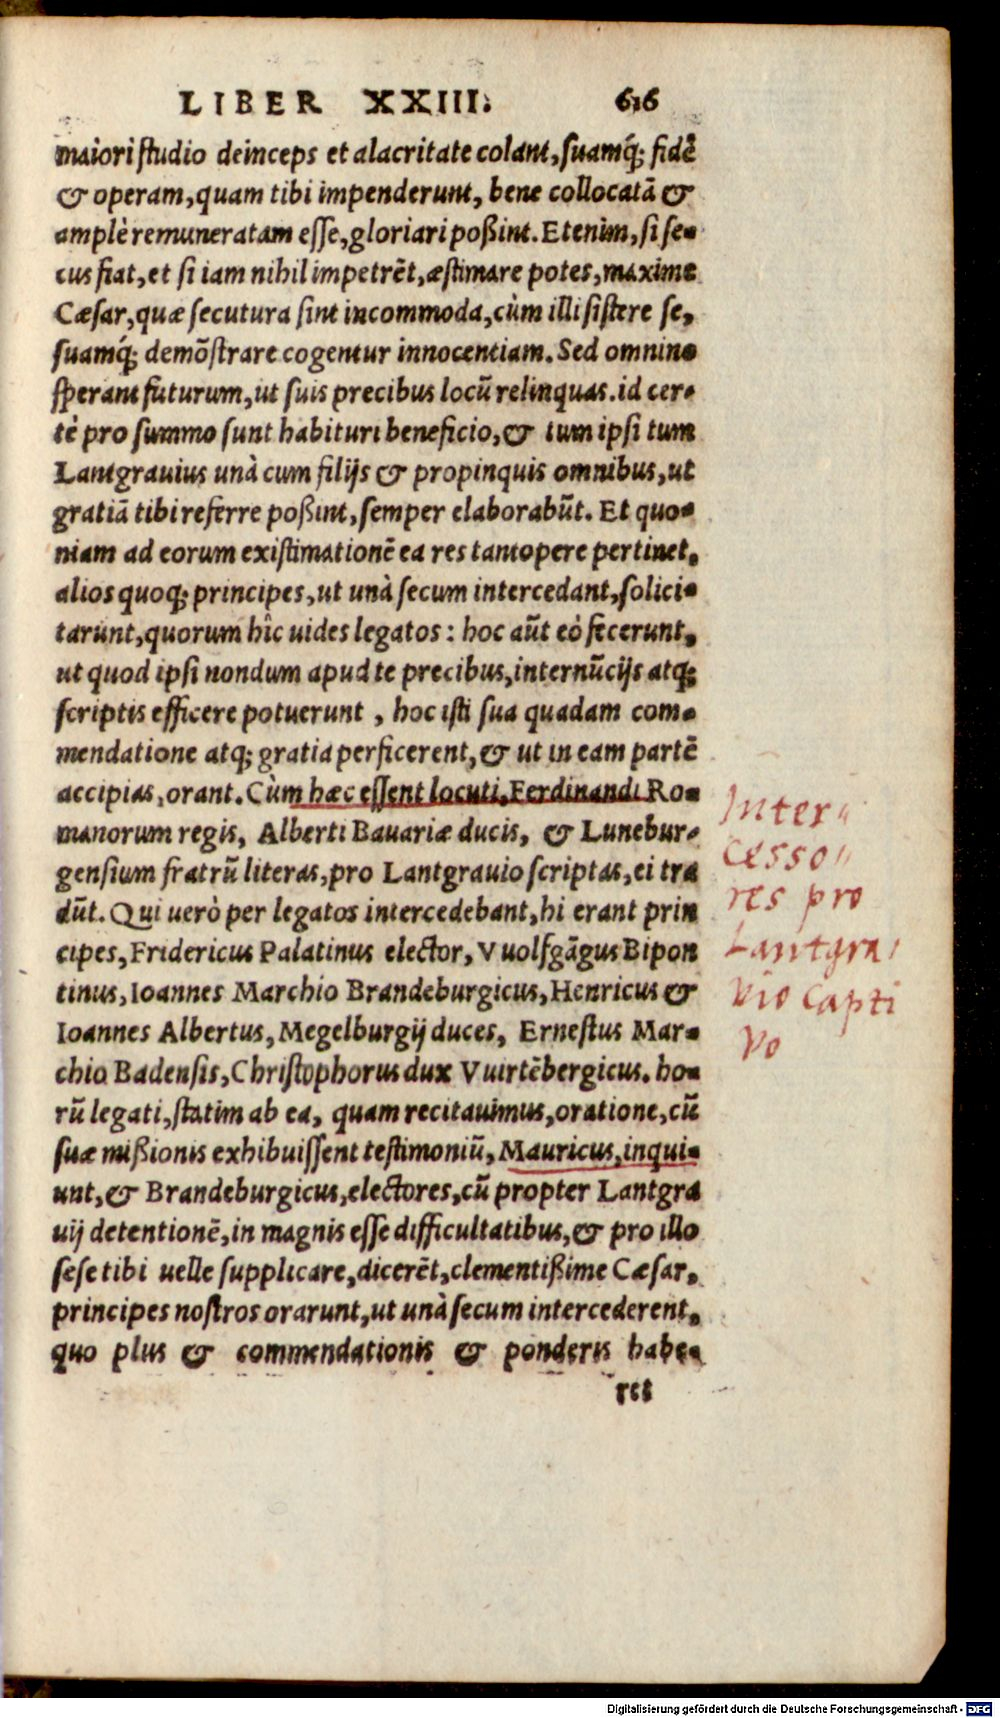 LIBER XXIII. 616
maiori studio deinceps et alacritate colant, suamq́; fidẽ
& operam, quam tibi impenderunt, bene collocatã &
amplè remuneratam esse, gloriari poßint. Etenim, si se-
cus fiat, et si iam nihil impetrẽt, æstimare potes, maxime
Cæsar, quæ secutura sint incommoda, cùm illi sistere se,
suamq́; demõstrare cogentur innocentiam. Sed omnino
sperant futurum, ut suis precibus locũ relinquas. id cer-
tè pro summo sunt habituri beneficio, & tum ipsi tum
Lantgrauius unà cum filijs & propinquis omnibus, ut
gratiã tibi referre poßint, semper elaborabũt. Et quo-
niam ad eorum existimationẽ ea res tantopere pertinet,
alios quoq; principes, ut unà secum intercedant, solici-
tarunt, quorum hîc uides legatos: hoc aũt eò fecerunt,
ut quod ipsi nondum apud te precibus, internũcijs atq;
scriptis efficere potuerunt, hoc isti sua quadam com-
mendatione atq; gratia perficerent, & ut in eam partẽ
accipias, orant. Cùm hæc essent locuti, Ferdinandi Ro-
manorum regis, Alberti Bauariæ ducis, & Lunebur-
gensium fratrũ literas, pro Lantgrauio scriptas, ei tra
dũt. Qui uerò per legatos intercedebant, hi erant prin
cipes, Fridericus Palatinus elector, Vuolfgãgus Bipon
tinus, Ioannes Marchio Brandeburgicus, Henricus &
Ioannes Albertus, Megelburgij duces, Ernestus Mar-
chio Badensis, Christophorus dux Vuirtẽbergicus. ho-
rũ legati, statim ab ea, quam recitauimus, oratione, cũ
suæ mißionis exhibuissent testimoniũ, Mauricus, inqui-
unt, & Brandeburgicus, electores, cũ propter Lantgra
uij detentionẽ, in magnis esse difficultatibus, & pro illo
sese tibi uelle supplicare, dicerẽt, clementißime Cæsar,
principes nostros orarunt, ut unà secum intercederent,
quo plus & commendationis & ponderis habe-
ret
Inter„
cesso„
res pro
Lantgra/
vio capti
vo
Digitalisierung gefördert durch die Deutsche Forschungsgemeinschaft - DFG